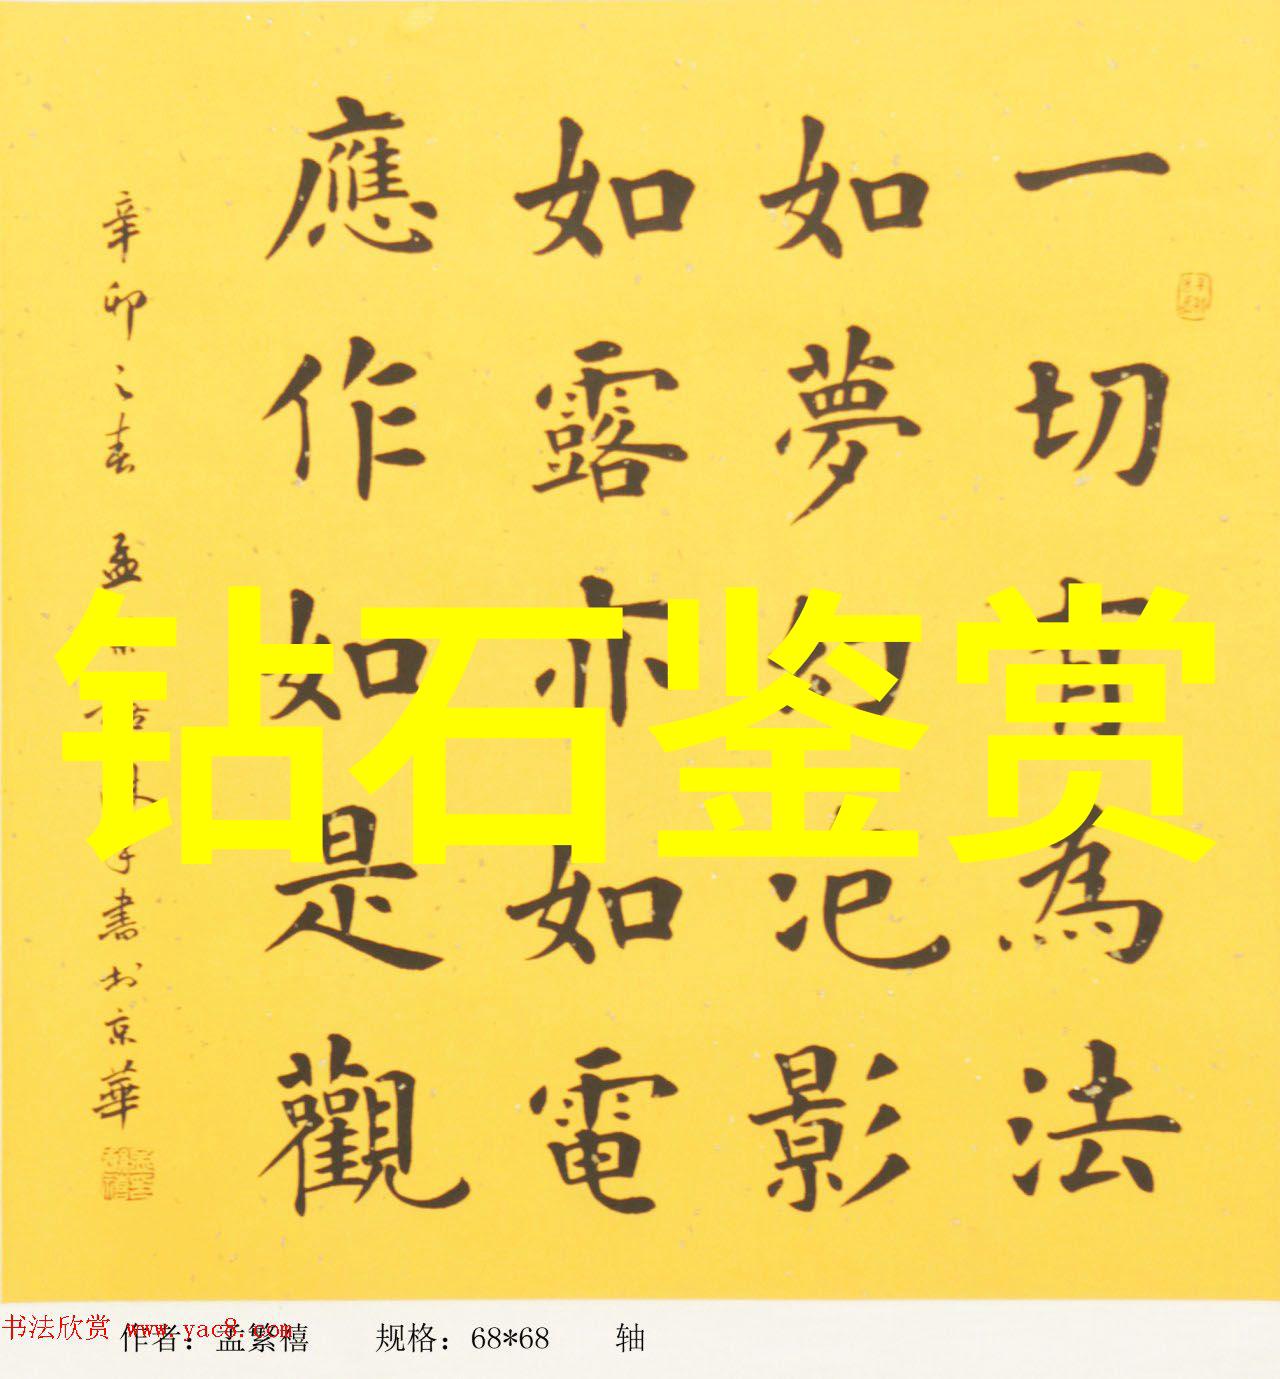 一切有為法
如夢幻泡影
如露亦如電
應作如是觀
辛卯之春 孟繁禧沐手書於京華
钻石鉴赏
书法欣赏 www.yac8.com
作者：孟繁禧 规格：68*68 轴